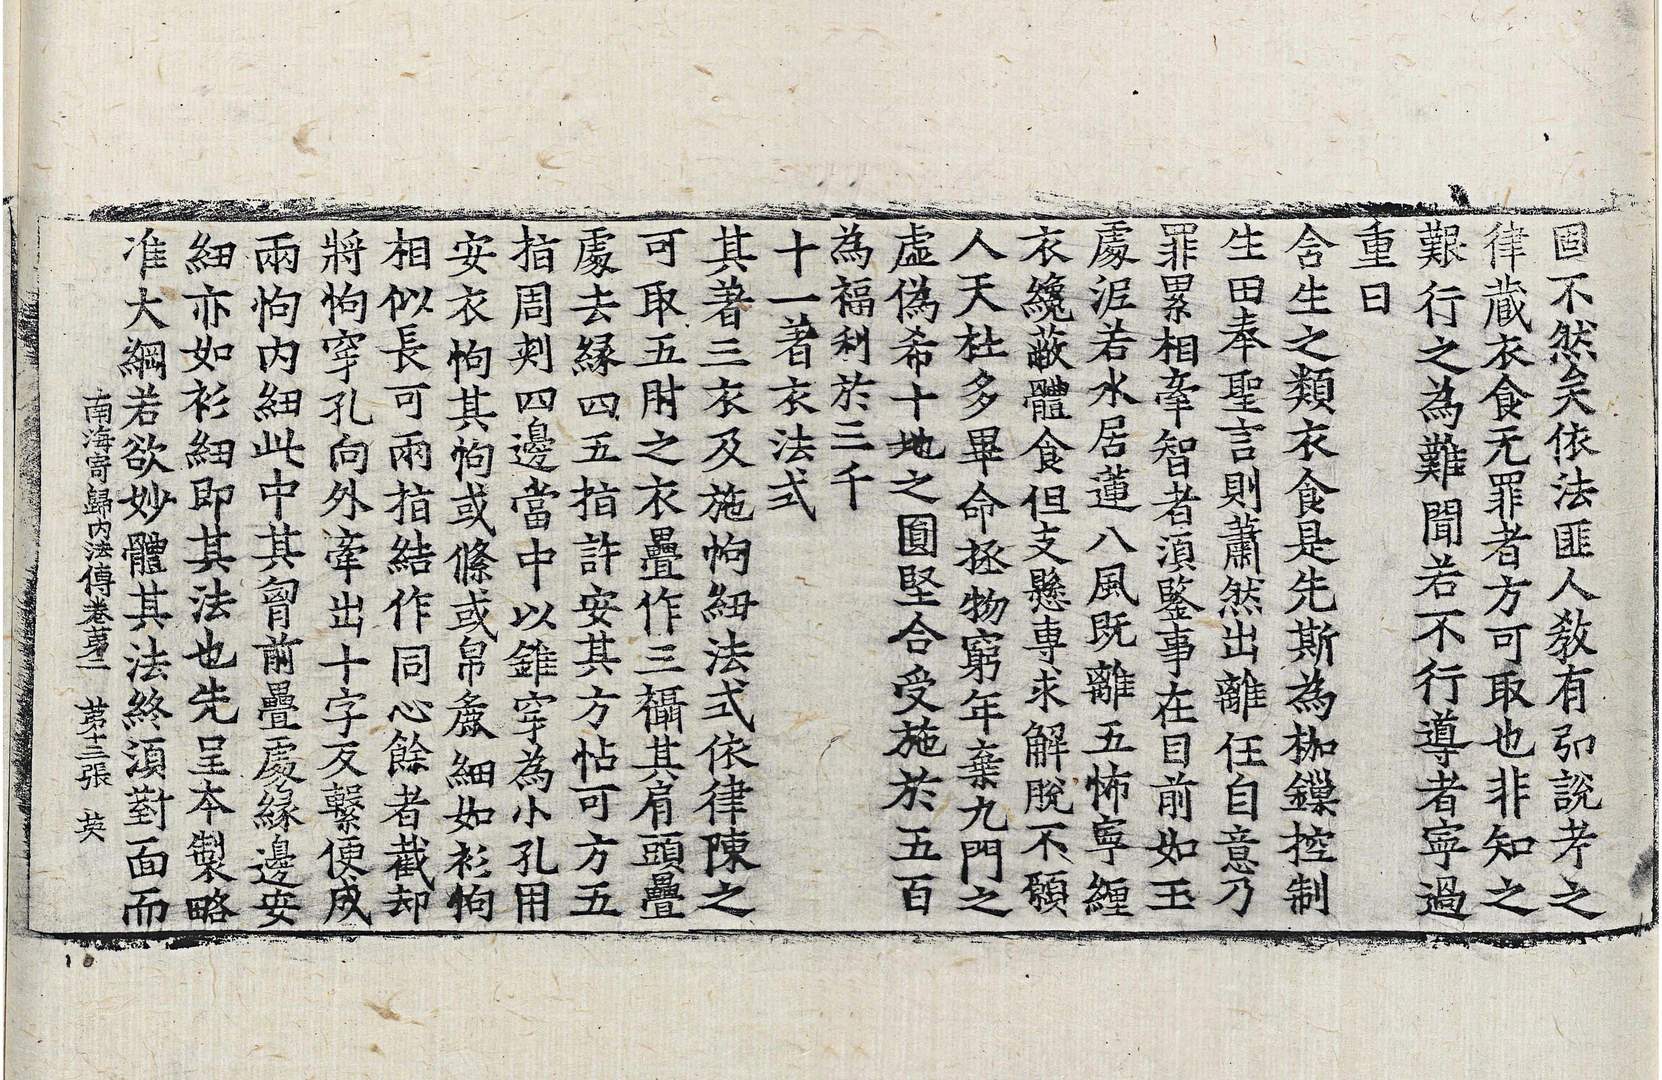 固不然矣依法匪人教有弘說考之
律藏衣食无罪者方可取也非知之
艱行之為難聞若不行導者寧過
重曰
含生之類衣食是先斯為枷鏁控制
生田奉聖言則蕭然出離任自意乃
罪累相牽智者湏鋻事在目前如玉
處泥若水居蓮八風既離五怖寧纏
衣纔蔽體食但支懸專求解脫不願
人天杜多畢命拯物窮年棄九門之
虛偽希十地之圓堅合受施於五百
為福利於三千
十一著衣法式
其著三衣及施㡇紐法式依律陳之
可取五肘之衣疊作三襵其肩頭疊
處去緣四五指許安其方帖可方五
指周刾四邊當中以錐穿為小孔用
安衣㡇其㡇或絛或帛麁細如衫㡇
相似長可兩指結作同心餘者截却
將㡇穿孔向外牽出十字反繫便成
兩㡇內紐此中其胷前疊處緣邊安
紐亦如衫紐即其法也先呈本製略
准大綱若欲妙體其法終湏對面而
南海寄歸內法傳卷苐二　苐十三張　英